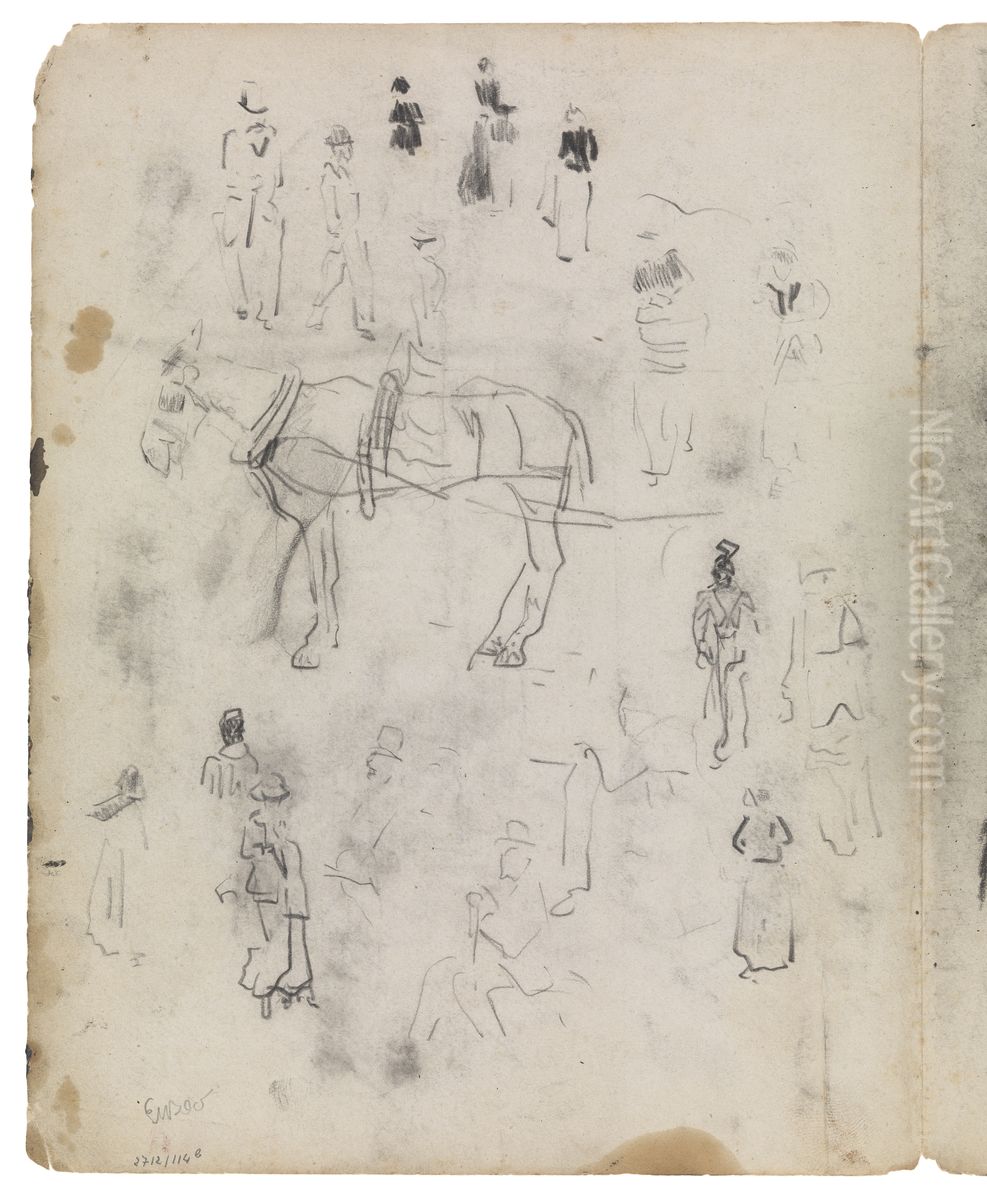 NiceArtGallery.com
2712/114 B